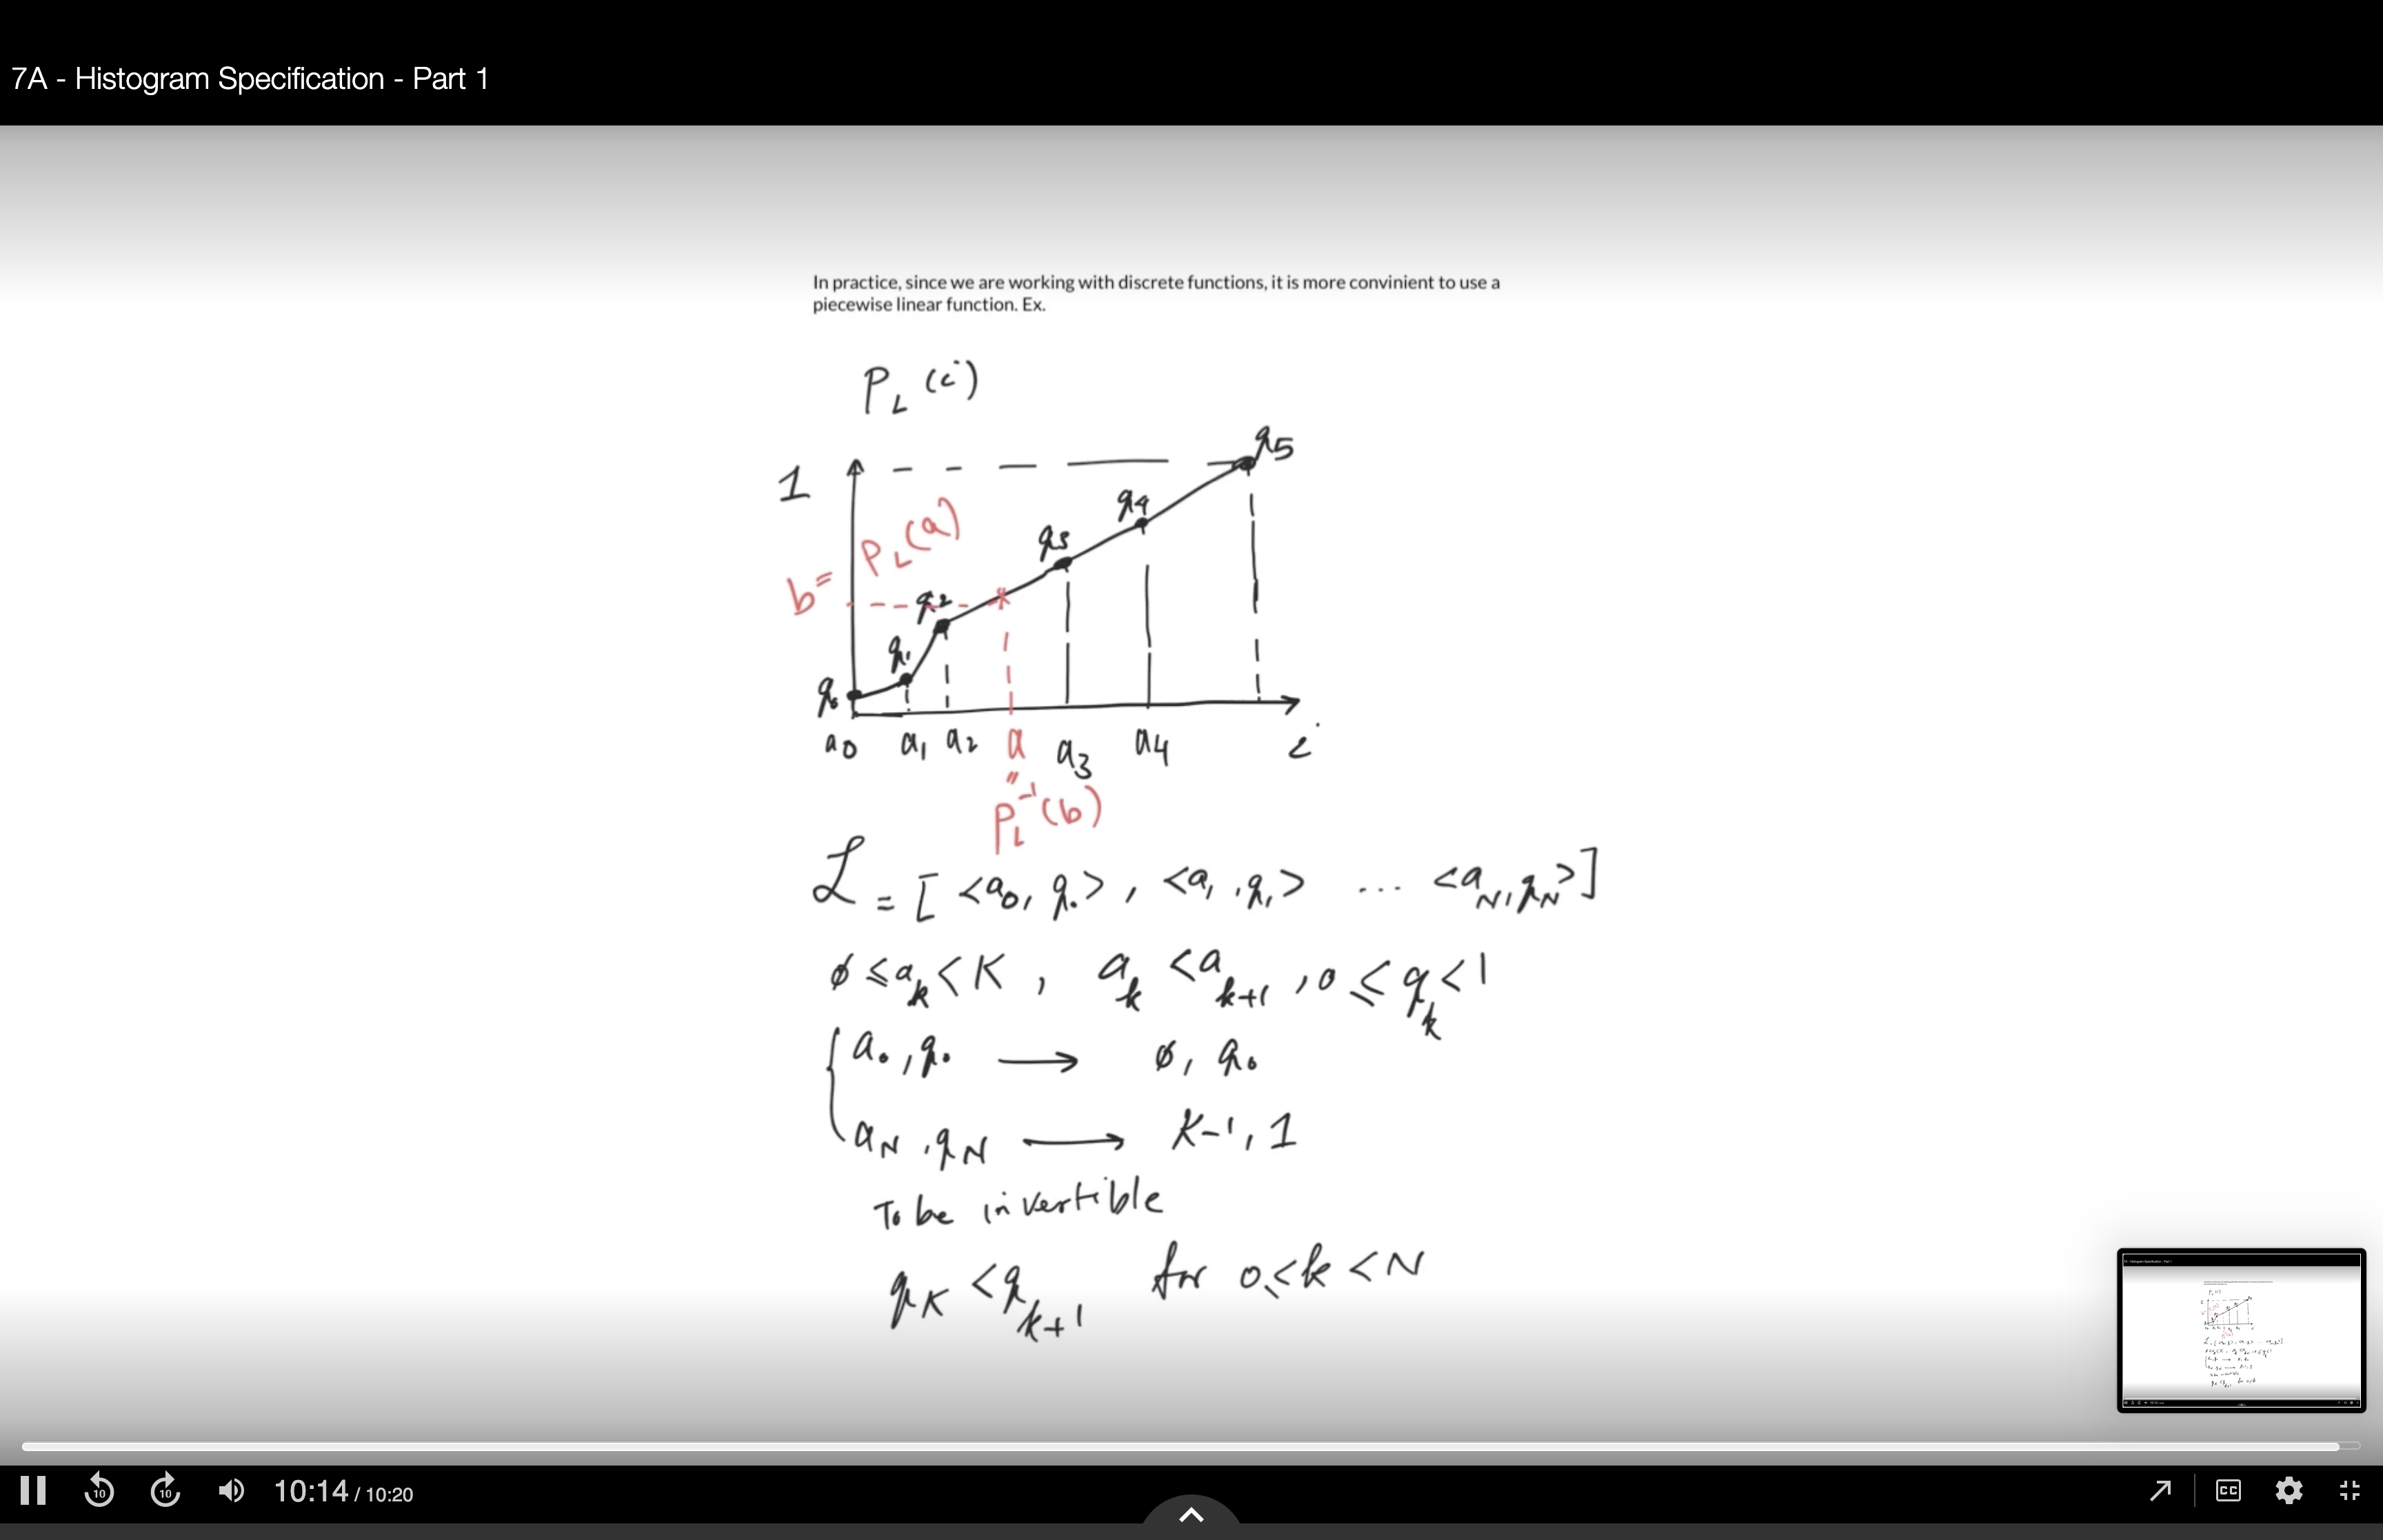 7A - Histogram Specification - Part 1
In practice, since we are working with discrete functions, it is more convinient to use a
piecewise linear function. Ex.
P_L (i)
1
q5
q4
q3
b = P_L(a)
q2
q1
q0
a0 a1 a2 a a3 a4 i
"
P_L^-1 (b)
ℒ = [ <a0, q0>, <a1, q1> ... <aN, qN> ]
0 ≤ a_k < K , a_k < a_k+1 , 0 ≤ q_k < 1
{ a0, q0 ⟶ 0, q0
aN, qN ⟶ K-1, 1
To be invertible
q_K < q_k+1 for 0 ≤ k < N
10 10 10:14 / 10:20 CC